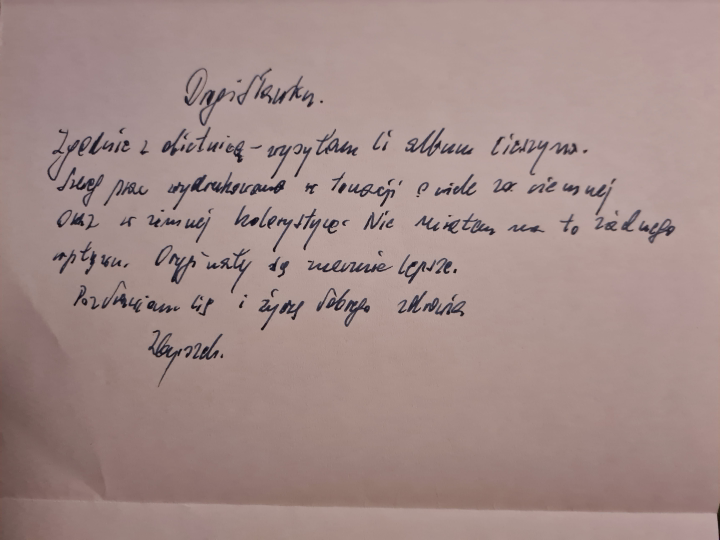 Drogi Sławku.
Zgodnie z obietnicą – wysyłam Ci album Cieszyna.
Szereg prac wydrukowano w tonacji o wiele za ciemnej
oraz w zimnej kolorystyce. Nie miałem na to żadnego
wpływu. Oryginały są znacznie lepsze.
Pozdrawiam Cię i życzę dobrego zdrowia
Zbyszek.